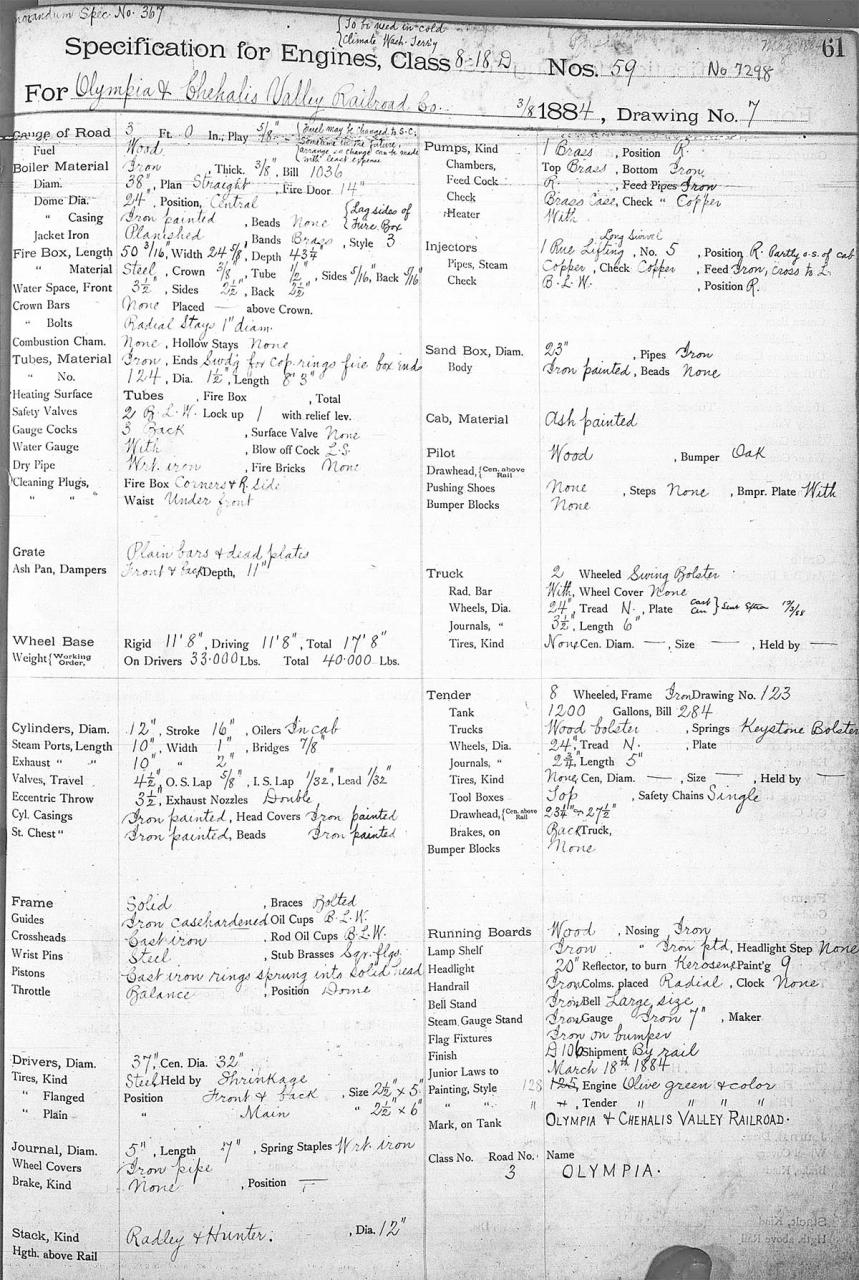 Memorandum Spec. No. 367
{To be used in cold
Climate Wash. Terr'y
Specification for Engines, Class 8-18-D, Nos. 59 No 7298 61
For Olympia & Chehalis Valley Railroad Co. 3/8 1884, Drawing No. 7
Gauge of Road 3 Ft. 0 In., Play 5/8" {Fuel may be changed to S.C.
Sometime in the future,
arrange so change can be made
with least expense
Fuel Wood
Boiler Material Iron, Thick. 3/8", Bill 1036
Diam. 38", Plan Straight, Fire Door 14"
Dome Dia. 24", Position, Central {Lag sides of
Fire Box
" Casing Iron painted, Beads None
Jacket Iron Planished, Bands Brass, Style 3
Fire Box, Length 50 3/16", Width 24 5/8, Depth 43¾
" Material Steel, Crown 3/8", Tube ½", Sides 5/16", Back 5/16"
Water Space, Front 3½", Sides 2½", Back 2½"
Crown Bars None Placed — above Crown.
" Bolts Radial Stays 1" diam.
Combustion Cham. None, Hollow Stays None
Tubes, Material Iron, Ends Swd'g for cop. rings fire box ends
" No. 124, Dia. 1½", Length 8' 3"
Heating Surface Tubes , Fire Box , Total
Safety Valves 2 B.L.W. Lock up 1 with relief lev.
Gauge Cocks 3 Back, Surface Valve None
Water Gauge With, Blow off Cock L.S.
Dry Pipe Wrt. iron, Fire Bricks None
Cleaning Plugs, Fire Box Corners & R. Side
" " Waist Under front
Grate Plain bars & dead plates
Ash Pan, Dampers Front & back Depth, 11"
Wheel Base Rigid 11' 8", Driving 11' 8", Total 17' 8"
Weight {Working Order, On Drivers 33.000 Lbs. Total 40.000 Lbs.
Cylinders, Diam. 12", Stroke 16", Oilers In cab
Steam Ports, Length 10", Width 1", Bridges 7/8"
Exhaust " " 10" " 2"
Valves, Travel 4½", O. S. Lap 5/8", I. S. Lap 1/32", Lead 1/32"
Eccentric Throw 3½", Exhaust Nozzles Double
Cyl. Casings Iron painted, Head Covers Iron painted
St. Chest " Iron painted, Beads Iron painted
Frame Solid, Braces Bolted
Guides Iron casehardened Oil Cups B.L.W.
Crossheads Cast iron, Rod Oil Cups B.L.W.
Wrist Pins Steel, Stub Brasses Sqr. flgs.
Pistons Cast iron rings sprung into solid head
Throttle Balance, Position Dome
Drivers, Diam. 37", Cen. Dia. 32"
Tires, Kind Steel Held by Shrinkage
" Flanged Position Front & back, Size 2½" x 5"
" Plain " Main " 2½" x 6"
Journal, Diam. 5", Length 7", Spring Staples Wrt. iron
Wheel Covers Iron pipe
Brake, Kind None, Position —
Stack, Kind Radley & Hunter. , Dia. 12"
Hgth. above Rail
Pumps, Kind 1 Brass, Position R.
Chambers, Top Brass, Bottom Iron,
Feed Cock R. , Feed Pipes Iron
Check Brass Case, Check " Copper
Heater With
Long Swivel
Injectors 1 Rue Lifting, No. 5, Position R. Partly o.s. of cab
Pipes, Steam Copper, Check Copper, Feed Iron, cross to L.
Check B.L.W. , Position R.
Sand Box, Diam. 23", Pipes Iron
Body Iron painted, Beads None
Cab, Material Ash painted
Pilot Wood, Bumper Oak
Drawhead, {Cen. above Rail
Pushing Shoes None, Steps None, Bmpr. Plate With
Bumper Blocks None
Truck 2 Wheeled Swing Bolster
Rad. Bar With, Wheel Cover None
Wheels, Dia. 24", Tread N., Plate
Journals, " 3½", Length 6"
Tires, Kind None Cen. Diam. —, Size —, Held by —
Tender 8 Wheeled, Frame Iron Drawing No. 123
Tank 1200 Gallons, Bill 284
Trucks Wood bolster, Springs Keystone Bolster
Wheels, Dia. 24", Tread N. , Plate
Journals, " 2¾", Length 5"
Tires, Kind None, Cen, Diam. —, Size —, Held by —
Tool Boxes Top, Safety Chains Single
Drawhead, {Cen. above Rail 23¾" & 27½"
Brakes, on Back Truck,
Bumper Blocks None
Running Boards Wood, Nosing Iron
Lamp Shelf Iron " Iron ptd, Headlight Step None
Headlight 20" Reflector, to burn Kerosene Paint'g 9
Handrail Iron Colms. placed Radial, Clock None
Bell Stand Iron Bell Large size
Steam Gauge Stand Iron Gauge Iron 7", Maker
Flag Fixtures Iron on bumper
Finish D 106 Shipment By rail
Junior Laws to March 18th 1884
Painting, Style 128 125, Engine Olive green & color
" " " ", Tender " " " "
Mark, on Tank OLYMPIA & CHEHALIS VALLEY RAILROAD.
Class No. Road No. Name
3 OLYMPIA.